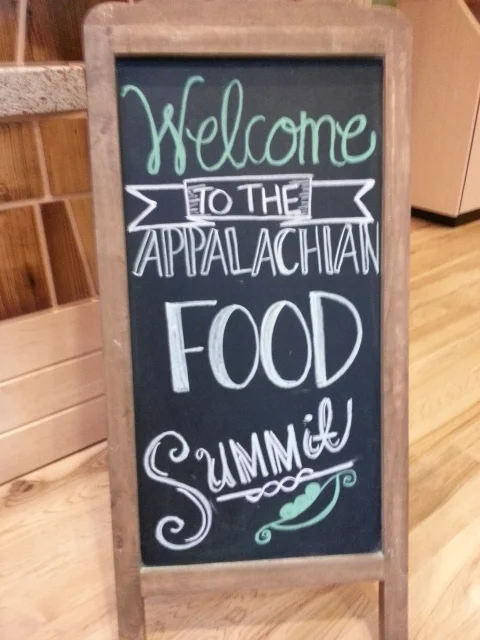 Welcome
TO THE
APPALACHIAN
FOOD
Summit